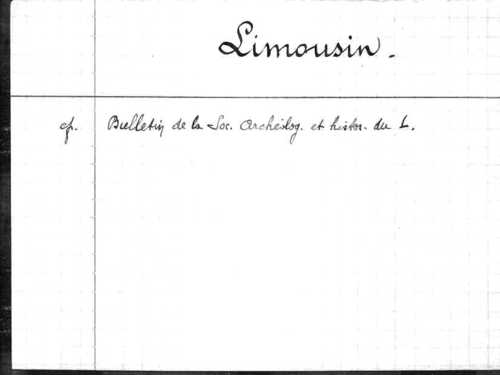 Limousin.
cf. Bulletin de la Soc. Archéolog. et histor. du L.